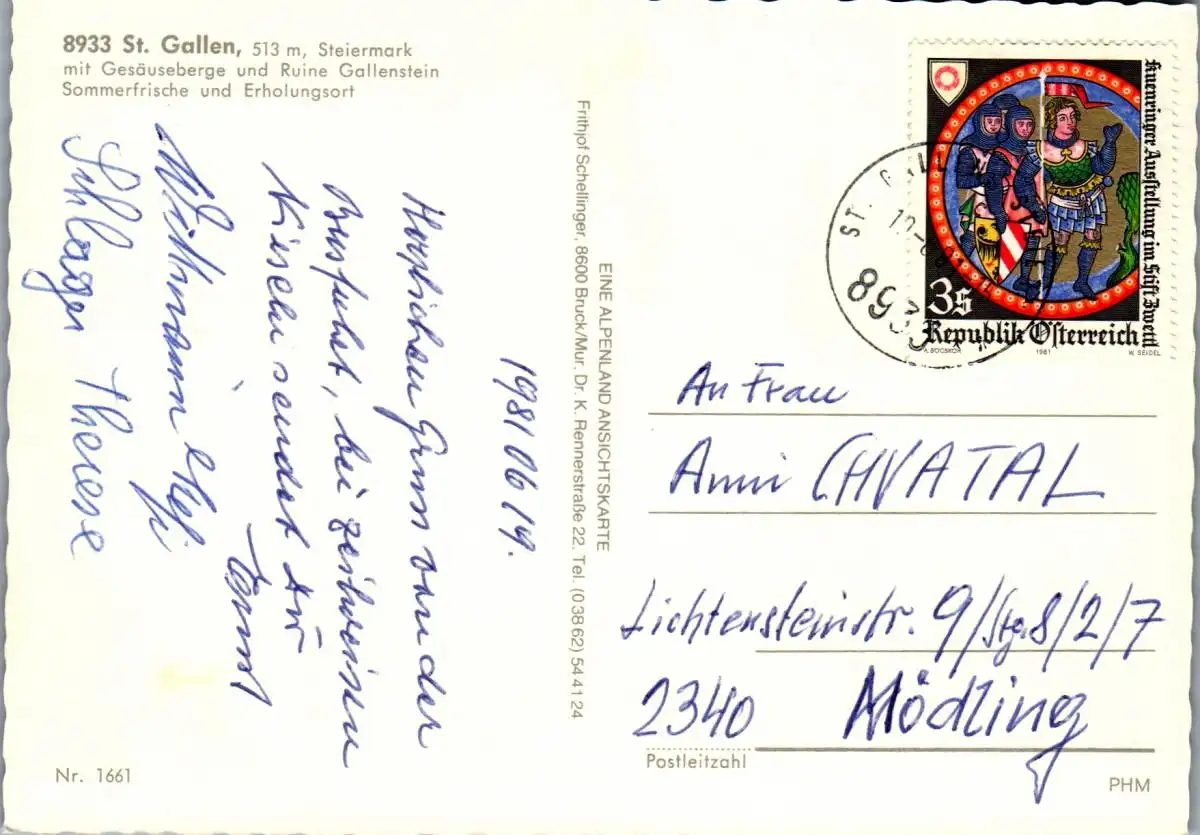 8933 St. Gallen, 513 m, Steiermark
mit Gesäuseberge und Ruine Gallenstein
Sommerfrische und Erholungsort
1981 06 14.
Herzlichen Gruss von der
Busfahrt, bei zeitweisen
Nieseln sendet Dir
Ernst
Schlager Therese
Nr. 1661
EINE ALPENLAND ANSICHTSKARTE
Frithjof Schellinger, 8600 Bruck/Mur, Dr. K. Rennerstraße 22, Tel. (0 38 62) 54 41 24
Kuenringer Ausstellung im Stift Zwettl
3s
Republik Österreich
A. BÖCSKÖR
1981
W. SEIDEL
ST.
8933
An Frau
Anni CHVATAL
Lichtensteinstr. 9/Stg.8/2/7
2340 Mödling
Postleitzahl
PHM